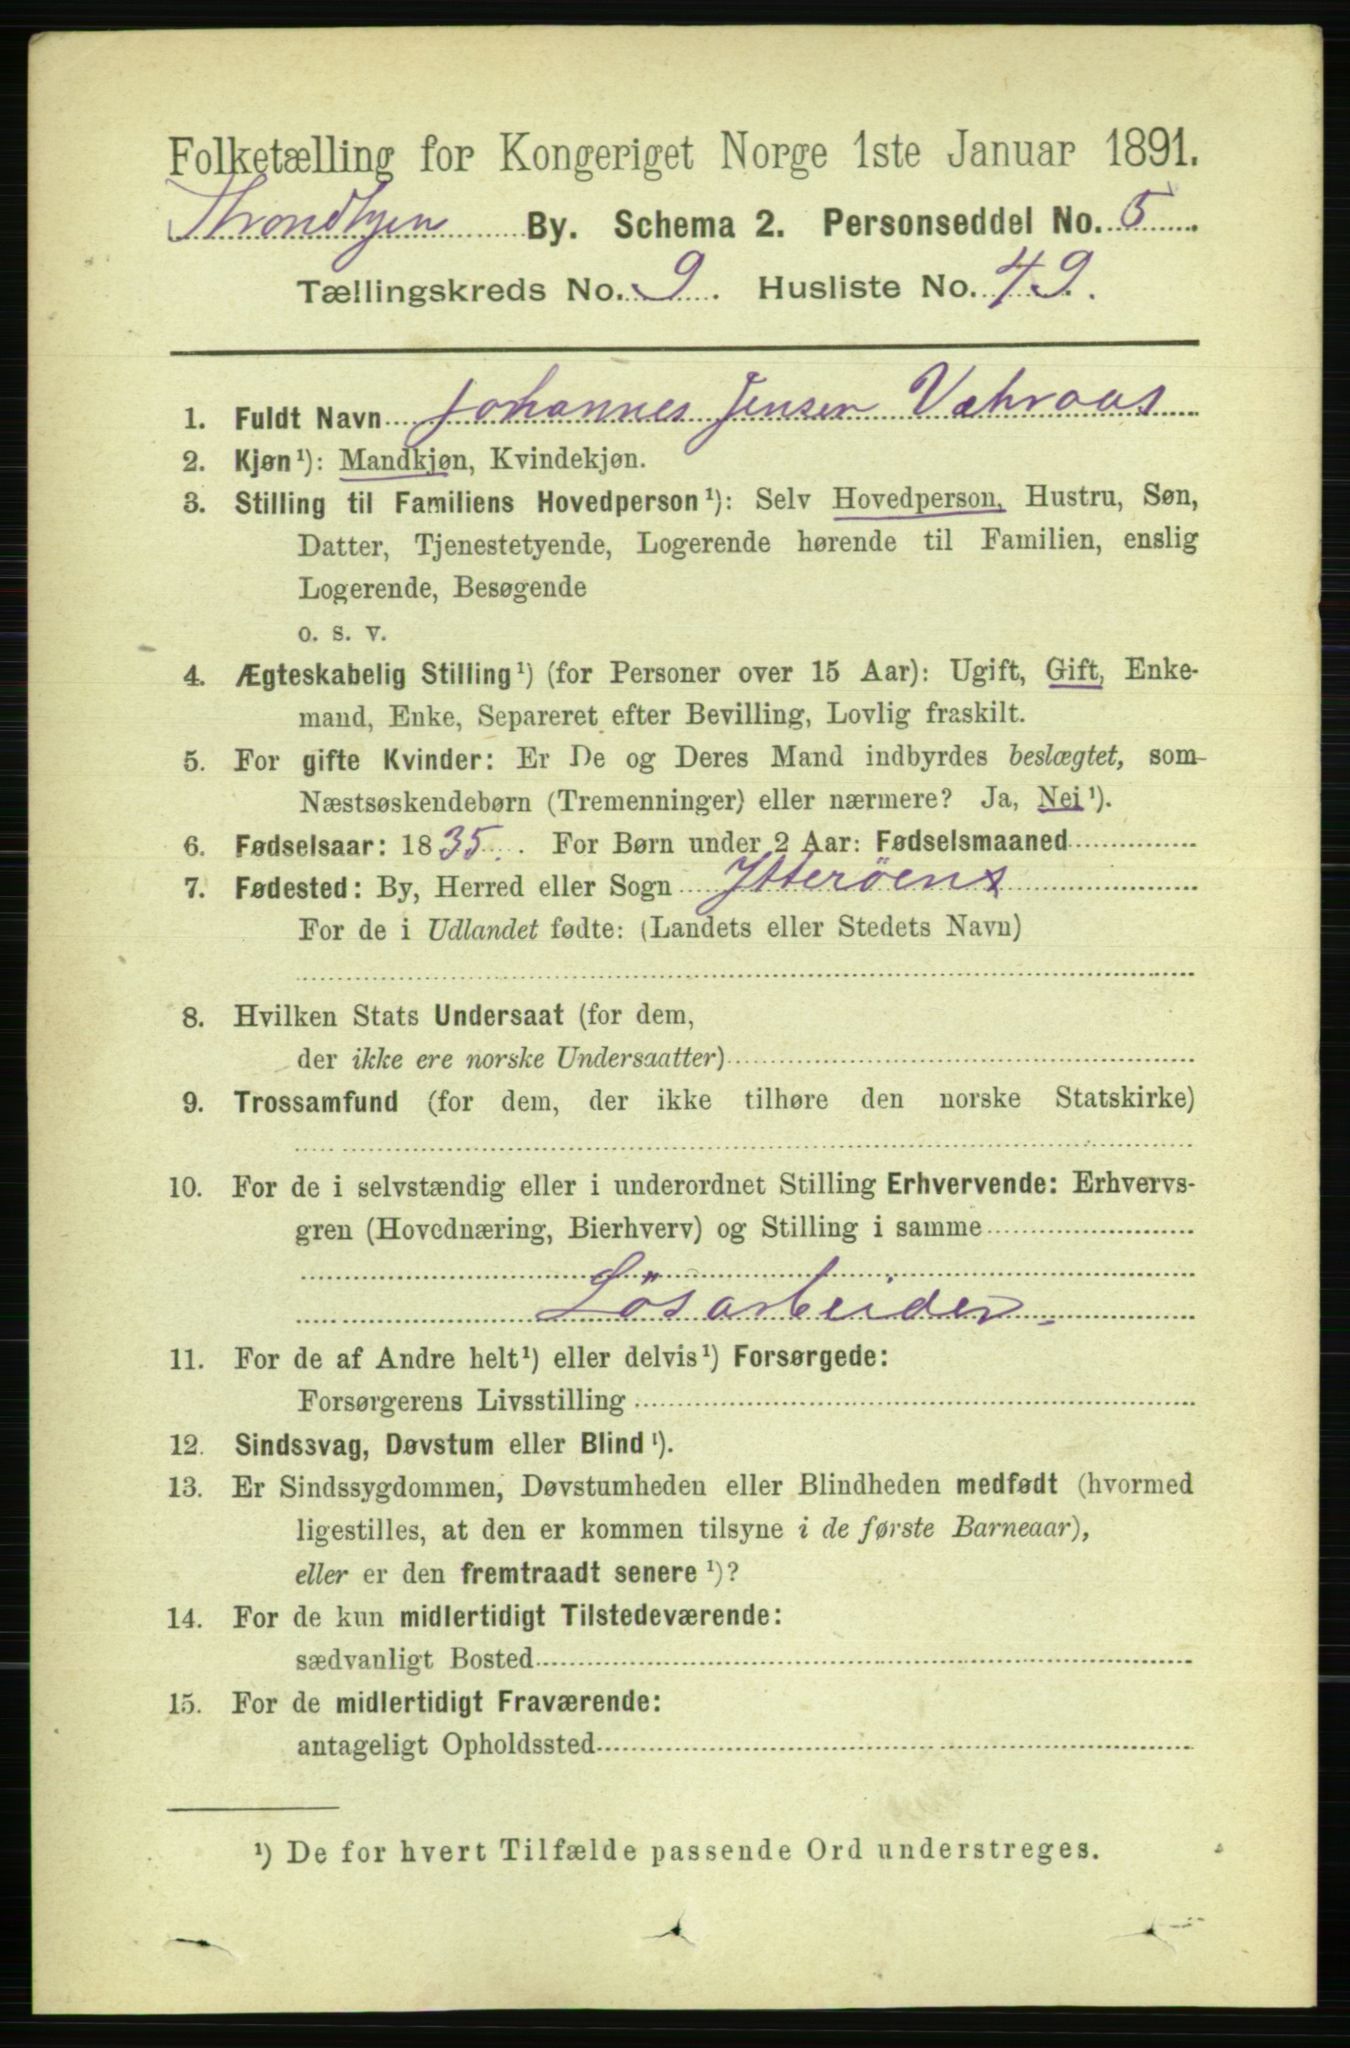 Folketælling for Kongeriget Norge 1ste Januar 1891.
Throndhjem By. Schema 2. Personseddel No. 5
Tællingskreds No. 9. Husliste No. 49.
1. Fuldt Navn Johannes Jensen
2. Kjøn¹): Mandkjøn, Kvindekjøn.
3. Stilling til Familiens Hovedperson¹): Selv Hovedperson, Hustru, Søn,
Datter, Tjenestetyende, Logerende hørende til Familien, enslig
Logerende, Besøgende
o. s. v.
4. Ægteskabelig Stilling¹) (for Personer over 15 Aar): Ugift, Gift, Enke-
mand, Enke, Separeret efter Bevilling, Lovlig fraskilt.
5. For gifte Kvinder: Er De og Deres Mand indbyrdes beslægtet, som
Næstsøskendebørn (Tremenninger) eller nærmere? Ja, Nei¹).
6. Fødselsaar: 1835. For Børn under 2 Aar: Fødselsmaaned
7. Fødested: By, Herred eller Sogn Ytterøens
For de i Udlandet fødte: (Landets eller Stedets Navn)
8. Hvilken Stats Undersaat (for dem,
der ikke ere norske Undersaatter)
9. Trossamfund (for dem, der ikke tilhøre den norske Statskirke)
10. For de i selvstændig eller i underordnet Stilling Erhvervende: Erhvervs-
gren (Hovednæring, Bierhverv) og Stilling i samme
Lösarbeider
11. For de af Andre helt¹) eller delvis¹) Forsørgede:
Forsørgerens Livsstilling
12. Sindssvag, Døvstum eller Blind¹).
13. Er Sindssygdommen, Døvstumheden eller Blindheden medfødt (hvormed
ligestilles, at den er kommen tilsyne i de første Barneaar),
eller er den fremtraadt senere¹)?
14. For de kun midlertidigt Tilstedeværende:
sædvanligt Bosted
15. For de midlertidigt Fraværende:
antageligt Opholdssted
¹) De for hvert Tilfælde passende Ord understreges.